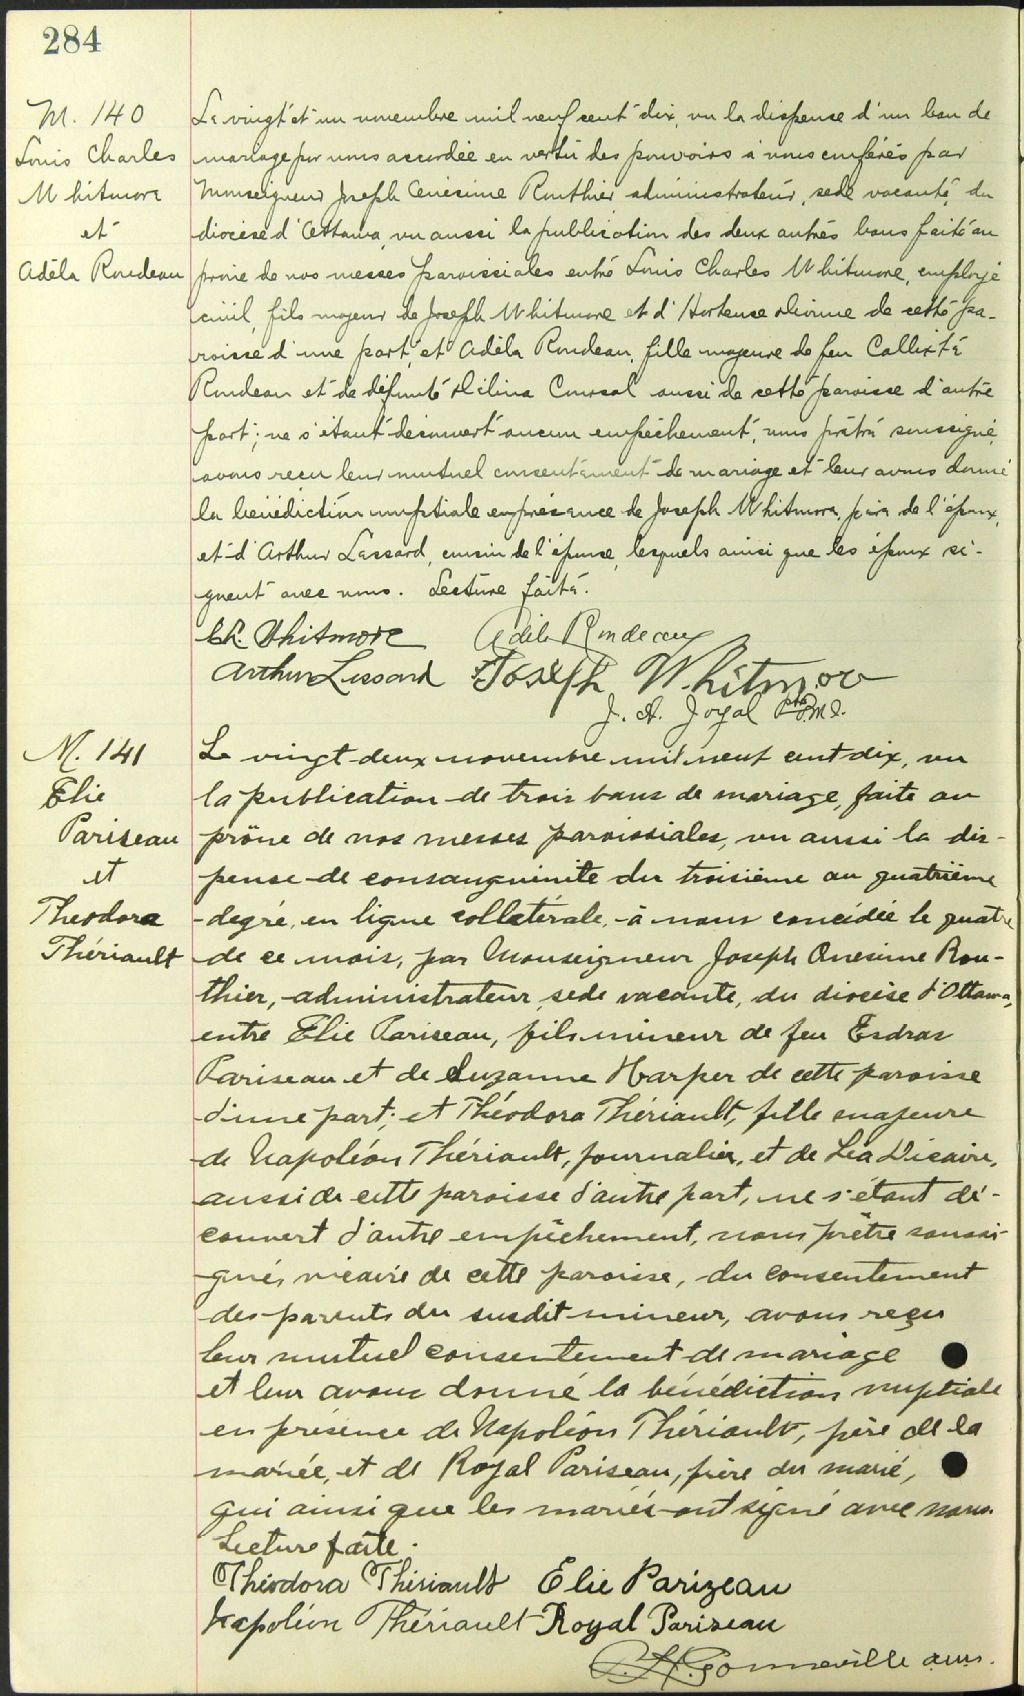 284
M. 140
Louis Charles
Whitmore
et
Adéla Rondeau
Le vingt et un novembre mil neuf cent dix, vu la dispense d'un ban de
mariage par nous accordée en vertu des pouvoirs à nous conférés par
Monseigneur Joseph Onésime Routhier administrateur, sede vacante, du
diocèse d'Ottawa, vu aussi la publication des deux autres bans faite au
prône de nos messes paroissiales entre Louis Charles Whitmore, employé
civil, fils majeur de Joseph Whitmore et d'Hortense Dionne de cette pa-
roisse d'une part, et Adéla Rondeau, fille majeure de feu Callixte
Rondeau et de défunte Délina Courval aussi de cette paroisse d'autre
part; ne s'étant découvert aucun empêchement, nous prêtre soussigné,
avons reçu leur mutuel consentement de mariage et leur avons donné
la bénédiction nuptiale en présence de Joseph Whitmore, père de l'époux,
et d'Arthur Lessard, cousin de l'épouse, lesquels ainsi que les époux si-
gnent avec nous. Lecture faite.
Ch. Whitmore Adéla Rondeau
Arthur Lessard Joseph Whitmore
J. A. Joyal Ptre O.M.I.
M. 141
Elie
Pariseau
et
Theodora
Thériault
Le vingt-deux novembre mil neuf cent dix, vu
la publication de trois bans de mariage, faite au
prône de nos messes paroissiales, vu aussi la dis-
pense de consanguinité du troisième au quatrième
degré, en ligne collatérale, à nous concédée le quatre
de ce mois, par Monseigneur Joseph Onesime Rou-
thier, administrateur, sede vacante, du diocèse d'Ottawa,
entre Elie Pariseau, fils mineur de feu Esdras
Pariseau et de Suzanne Harper de cette paroisse
d'une part; et Théodora Thériault, fille majeure
de Napoléon Thériault, journalier, et de Léa Dicaire,
aussi de cette paroisse d'autre part, ne s'étant dé-
couvert d'autre empêchement, nous prêtre soussi-
gné, vicaire de cette paroisse, du consentement
des parents du susdit mineur, avons reçu
leur mutuel consentement de mariage
et leur avons donné la bénédiction nuptiale
en présence de Napoléon Thériault, père de la
mariée, et de Royal Pariseau, frère du marié,
qui ainsi que les mariés ont signé avec nous.
Lecture faite.
Théodora Thériault Elie Parizeau
Napoléon Thériault Royal Pariseau
Gonneville